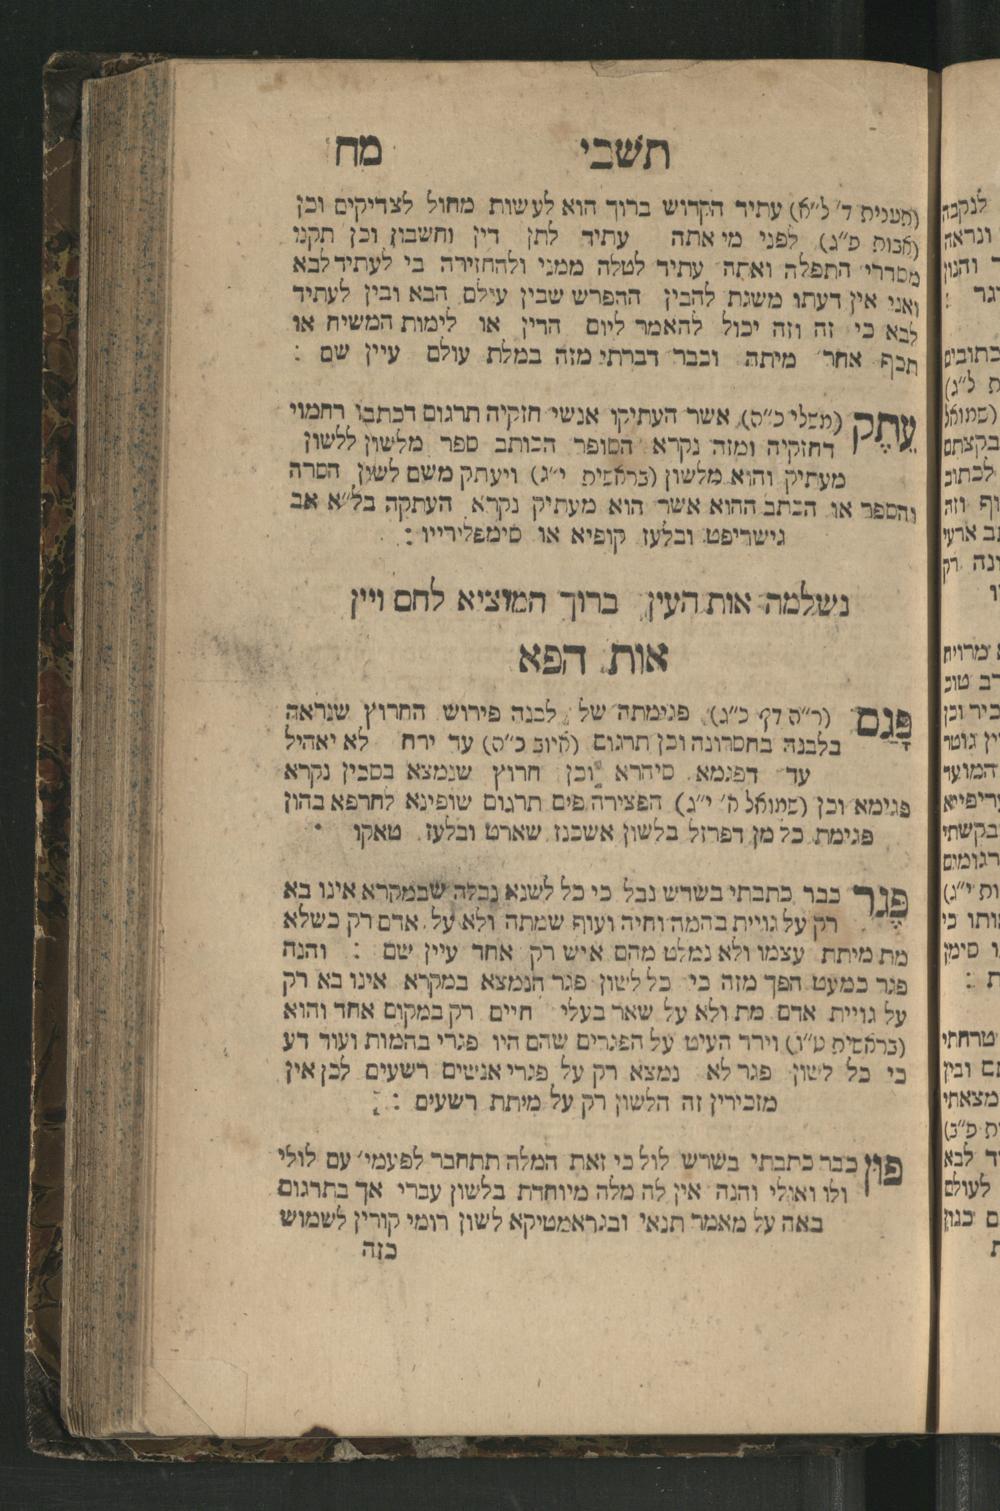 תשבי מח
(תענית ד׳ ל״א) עתיד הקדוש ברוך הוא לעשות מחול לצדיקים וכן
(אבות פ״ג) לפני מי אתה עתיד לתן דין וחשבון וכן תקנו
מסדרי התפלה ואתה עתיד לטלה ממני ולהחזירה בי לעתיד לבא
ואני אין דעתו משגת להבין ההפרש שבין עולם הבא ובין לעתיד
לבא כי זה וזה יכול להאמר ליום הדין או לימות המשיח או
תכף אחר מיתה וכבר דברתי מזה במלת עולם עיין שם :
עָתֵק (משלי כ״ה) אשר העתיקו אנשי חזקיה תרגום דכתבו רחמוי
דחזקיה ומזה נקרא הסופר הכותב ספר מלשון ללשון
מעתיק והוא מלשון (בראשית י״ג) ויעתק משם לשון הסרה
והספר או הכתב ההוא אשר הוא מעתיק נקרא העתקה בל״א אב
גישריפט ובלעז קופיא או סימפלירייו :
נשלמה אות העין ברוך המוציא לחם ויין
אות הפא
פָּגַם (ר״ה דף כ״ג) פגימתה של לבנה פירוש החרוץ שנראה
בלבנה בחסרונה וכן תרגום (איוב כ״ה) עד ירח לא יאהיל
עד דפגמא סיהרא וכן חרוץ שנמצא בסכין נקרא
פגימא וכן (שמואל א׳ י״ג) הפצירה פים תרגום שופינא לחרפא בהון
פגימת כל מן דפרזל בלשון אשכנז שארט ובלעז טאקו
פֶּגֶר כבר כתבתי בשרש נבל כי כל לשנא נבלה שבמקרא אינו בא
רק על גויית בהמה וחיה ועוף שמתה ולא על אדם רק כשלא
מת מיתת עצמו ולא נמלט מהם איש רק אחד עיין שם : והנה
פגר כמעט הפך מזה כי כל לשון פגר הנמצא במקרא אינו בא רק
על גויית אדם מת ולא על שאר בעלי חיים רק במקום אחד והוא
(בראשית ט״ו) וירד העיט על הפגרים שהם היו פגרי בהמות ועוד דע
כי כל לשון פגר לא נמצא רק על פגרי אנשים רשעים לכן אין
מזכירין זה הלשון רק על מיתת רשעים :
פון כבר כתבתי בשרש לול כי זאת המלה תתחבר לפעמי׳ עם לולי
ולו ואולי והנה אין לה מלה מיוחדת בלשון עברי אך בתרגום
באה על מאמר תנאי ובגראמטיקא לשון רומי קורין לשמוש
כזה